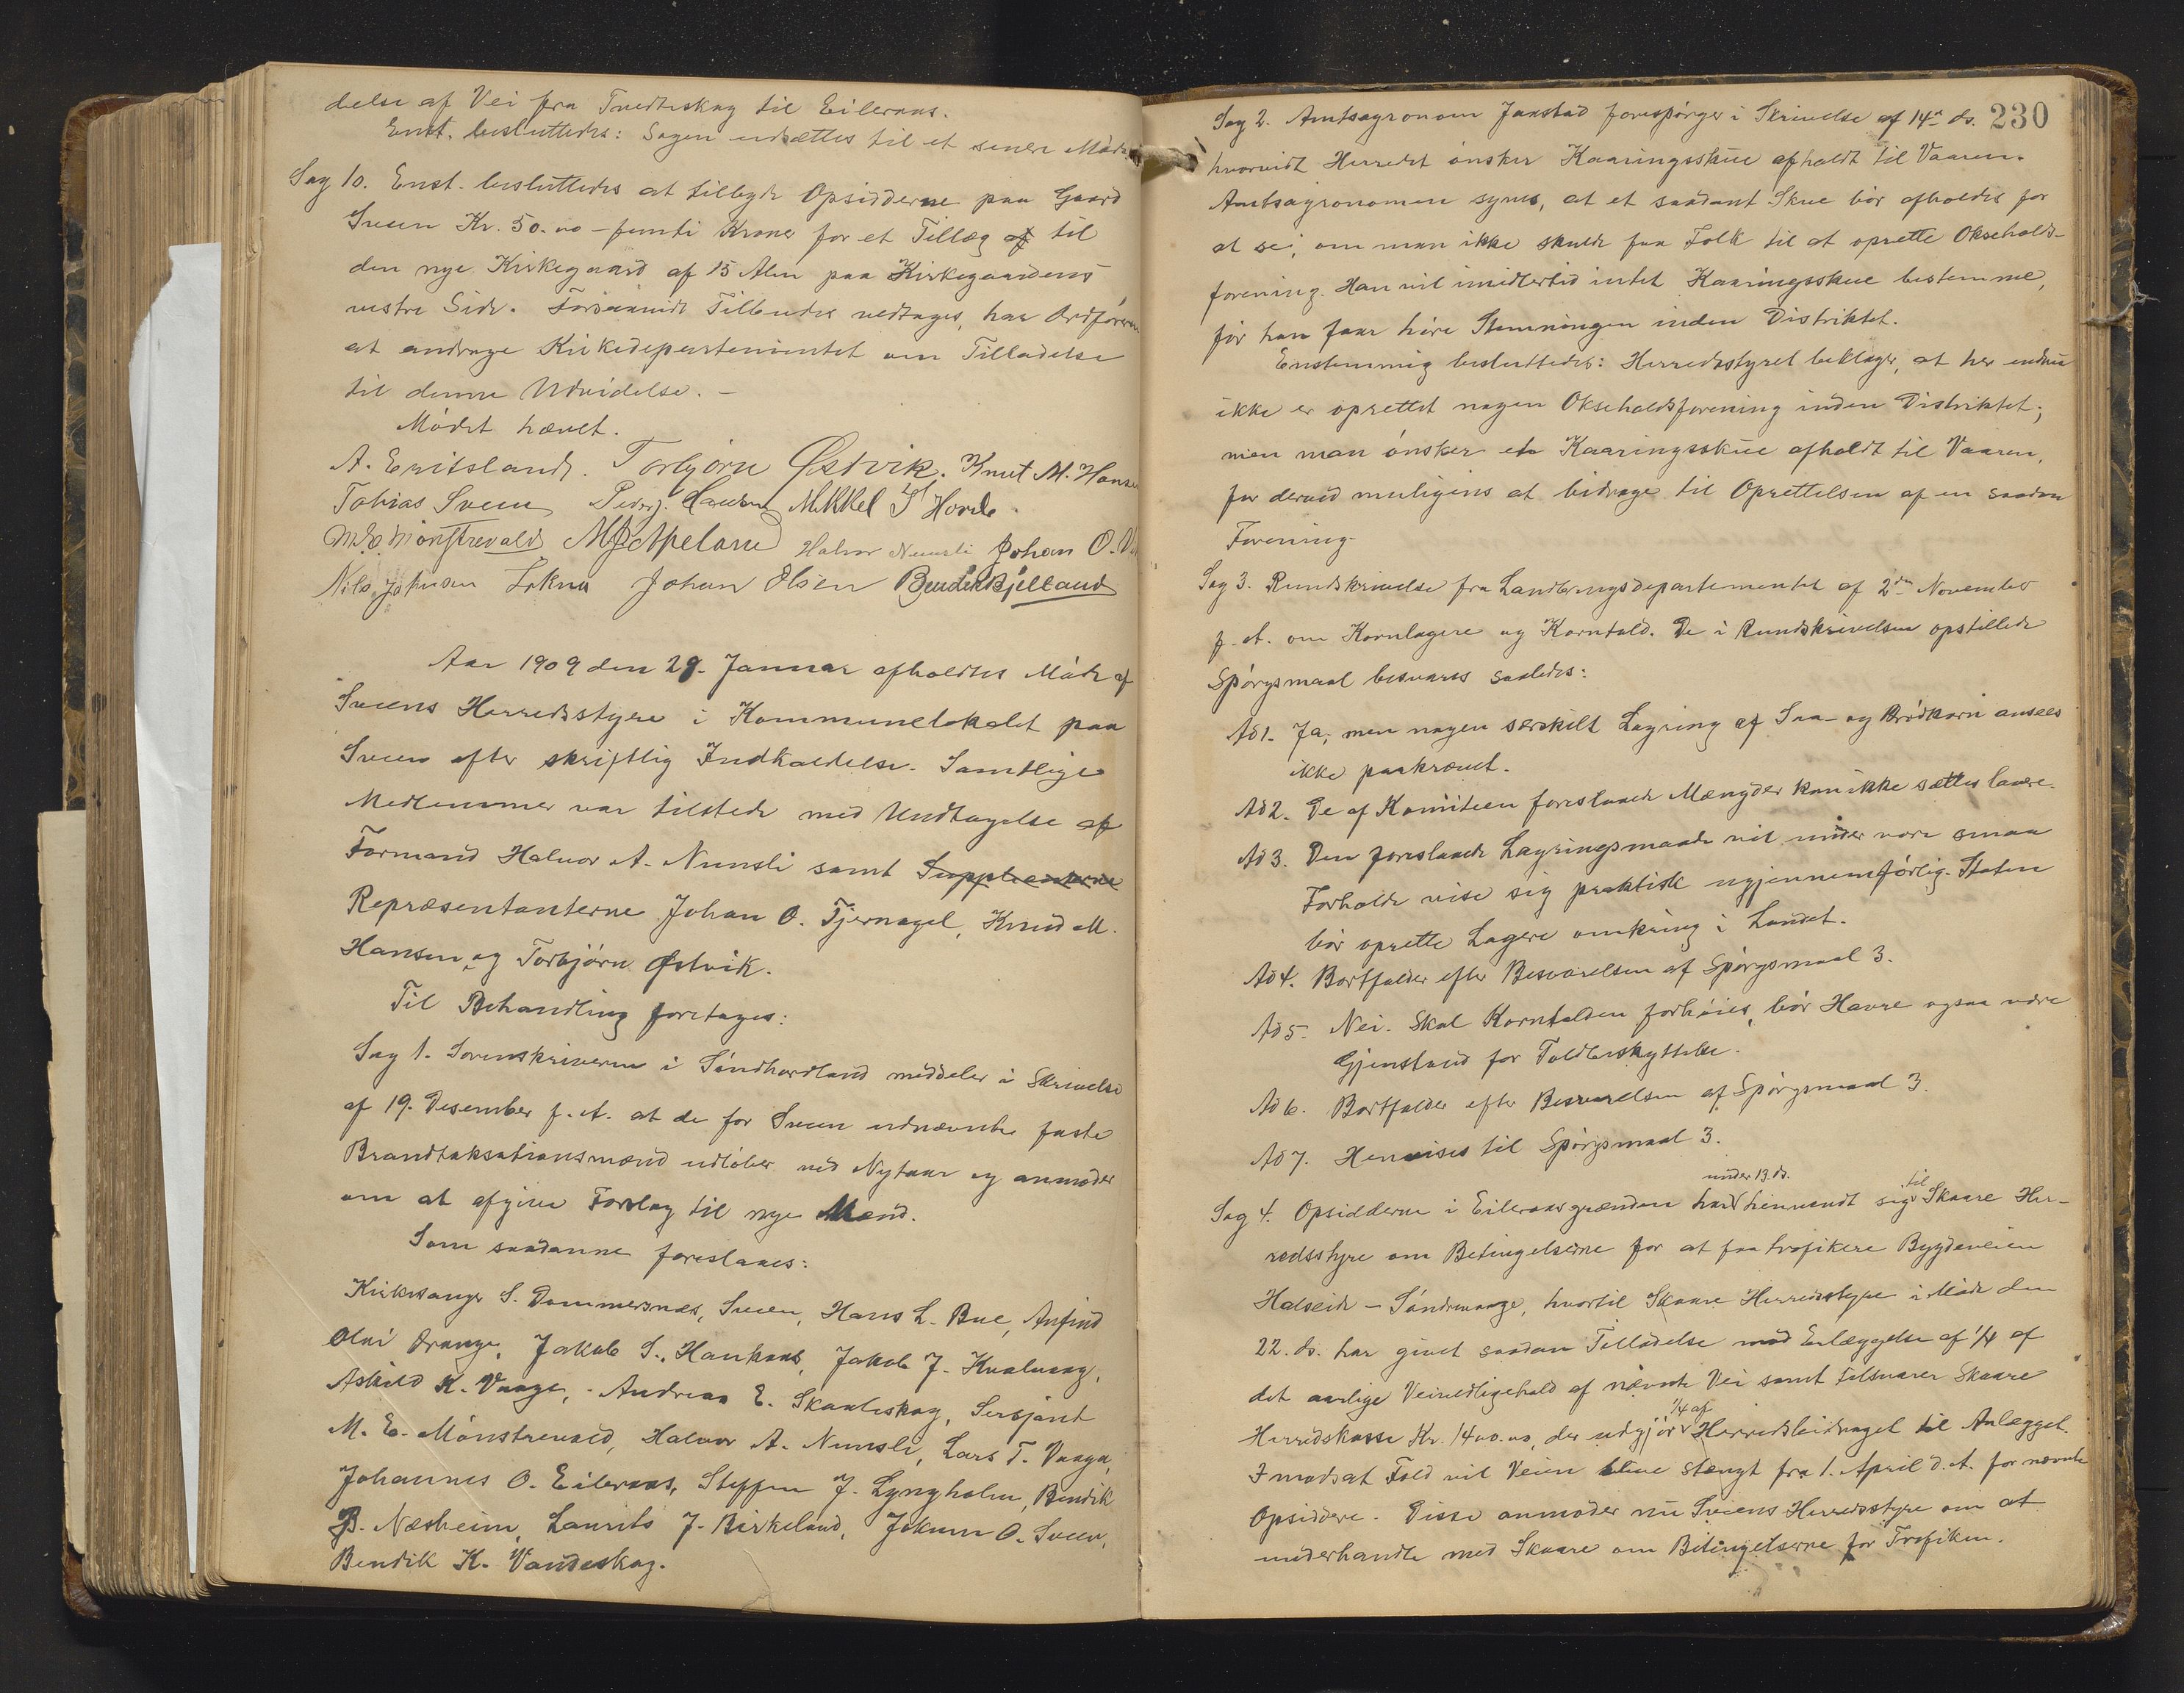 delse af Vei fra Tvedteskog til Eileraas.
Enst. besluttedes: Sagen udsættes til et senere Møde
Sag 10. Enst. besluttedes at tilbyde Opsidderne paa Gaard
Sveen Kr. 50.00 – femti Kroner for et Tillæg af til
den nye Kirkegaard af 15 Alen paa Kirkegaardens
vestre Side. Forsaavidt Tilbudet vedtages, har Ordføreren
at andrage Kirkedepartementet om Tilladelse
til denne Udvidelse. –
Mødet hævet.
A. Emitslandr. Torbjørn Østvik. Knut M. Hansen
Tobias Sveen Peder J. Mikkel S Horde.
M. E. Mønstrevold M J Apeland Halvor Nunsli Johan O.
Nils Johnsen Lokna Johan Olsen Bendik Bjelland
Aar 1909 den 29. Januar afholdtes Møde af
Sveens Herredsstyre i Kommunelokalet paa
Sveen efter skriftlig Indkaldelse. Samtlige
Medlemmer var tilstede med Undtagelse af
Formand Halvor A. Nunsli samt Suppleanterne
Repræsentanterne Johan O. Tjernagel, Knud M.
Hansen og Torbjørn Østvik.
Til Behandling foretages:
Sag 1. Sorenskriveren i Søndhordland meddeler i Skrivelse
af 19. Desember f. A. at de for Sveen udnævnte faste
Brandtaksationsmænd udløber ved Nytaar og anmoder
om at afgive Forslag til nye Mænd.
Som saadanne foreslaaes:
Kirkesanger S. Dommersnes, Sveen, Hans L. Bue, Anfind
Olai Drange, Jakob S. Haukaas, Jakob J. Kvalvaag,
Askild K. Vaage, Andreas E. Skaaleskog, Sersjant
M. E. Mønstrevold, Halvor A. Nunsli, Lars T. Vaaga,
Johannes O. Eileraas, Steffen J. Lyngholm, Bendik
B. Næsheim, Laurits J. Birkeland, Jokum O. Sveen,
Bendik K. Vandeskog.
230
Sag 2. Amtsagronom Jaastad forespørger i Skrivelse af 14de ds.
hvorvidt Herredet ønsker Kaaringsskue afholdt til Vaaren.
Amtsagronomen synes, at et saadant Skue bør afholdes for
at se, om man ikke skulde faa Folk til at oprette Oksehold-
forening. Han vil imidlertid intet Kaaringsskue bestemme,
før han faar høre Stemningen inden Distriktet.
Enstemmig besluttedes: Herredsstyret beklager, at her endnu
ikke er oprettet nogen Okseholdsforening inden Distriktet;
men man ønsker et Kaaringsskue afholdt til Vaaren,
for derved muligens at bidrage til Oprettelsen af en saadan
Forening.
Sag 3. Rundskrivelse fra Landbrugsdepartementet af 2den November
f. A. om Kornlagere og Korntold. De i Rundskrivelsen opstillede
Spørgsmaal besvares saaledes:
Ad 1. Ja; men nogen særskilt Lagring af Saa- og Brødkorn ansees
ikke paakrævet.
Ad 2. De af Komiteen foreslaaede Mængder kan ikke sættes lavere.
Ad 3. Den foreslaaede Lagringsmaade vil under vore smaa
Forholde vise sig praktisk ugjennemførlig. Staten
bør oprette Lagere omkring i Landet.
Ad 4. Bortfalder efter Besvarelsen af Spørgsmaal 3.
Ad 5. Nei. Skal Korntolden forhøies, bør Havre ogsaa være
Gjenstand for Toldbeskyttelse.
Ad 6. Bortfalder efter Besvarelsen af Spørgsmaal 3.
Ad 7. Henvises til Spørgsmaal 3.
under 13. ds. til
Sag 4. Opsidderne i Eileraasgrænden har henvendt sig Skaare Her-
redsstyre om Betingelserne for at faa trafikere Bygdeveien
Halseide – Søndrevaage, hvortil Skaare Herredsstyre i Møde den
22. ds. har givet saadan Tilladelse mod Erlæggelse af 1/4 af
det aarlige Veivedligehold af nævnte Vei samt tilsvarer Skaare
1/4 af
Herredskasse Kr. 1400.00, der udgjør Herredsbidraget til Anlægget.
I modsat Fald vil Veien blive stængt fra 1. April d. A. for nævnte
Opsiddere. Disse anmoder nu Sveens Herredsstyre om at
underhandle med Skaare om Betingelserne for Trafiken.